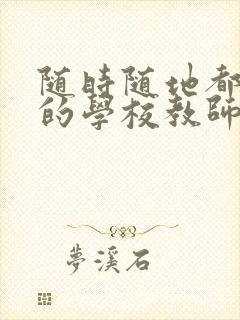 随時随地都
的學校教師
夢溪石